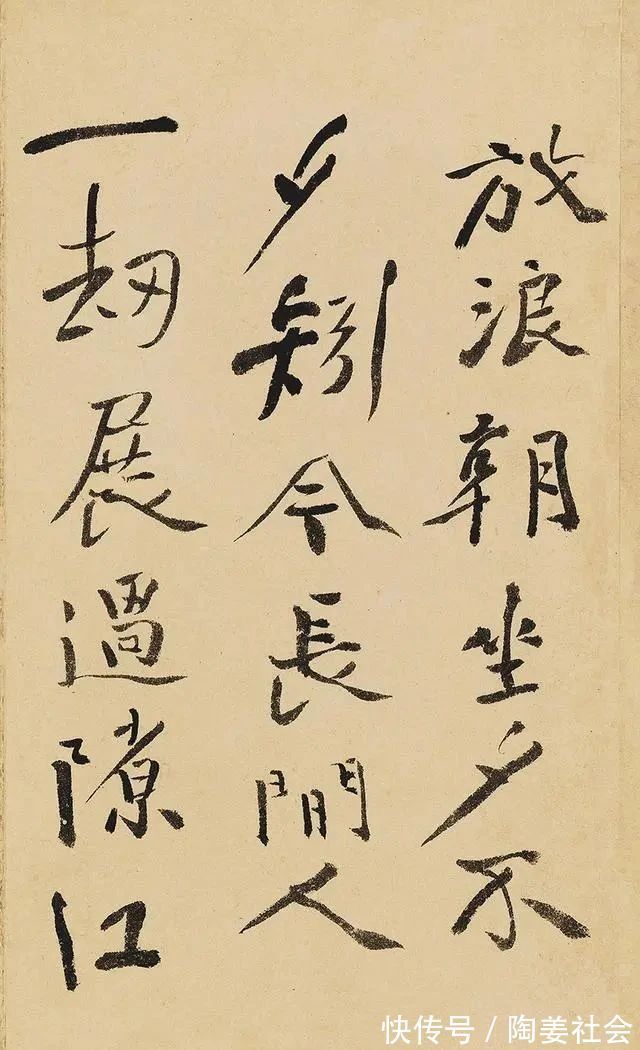 放浪朝坐夕不
夕矧今長閒人
一刼展過隙江
快传号/陶姜社会